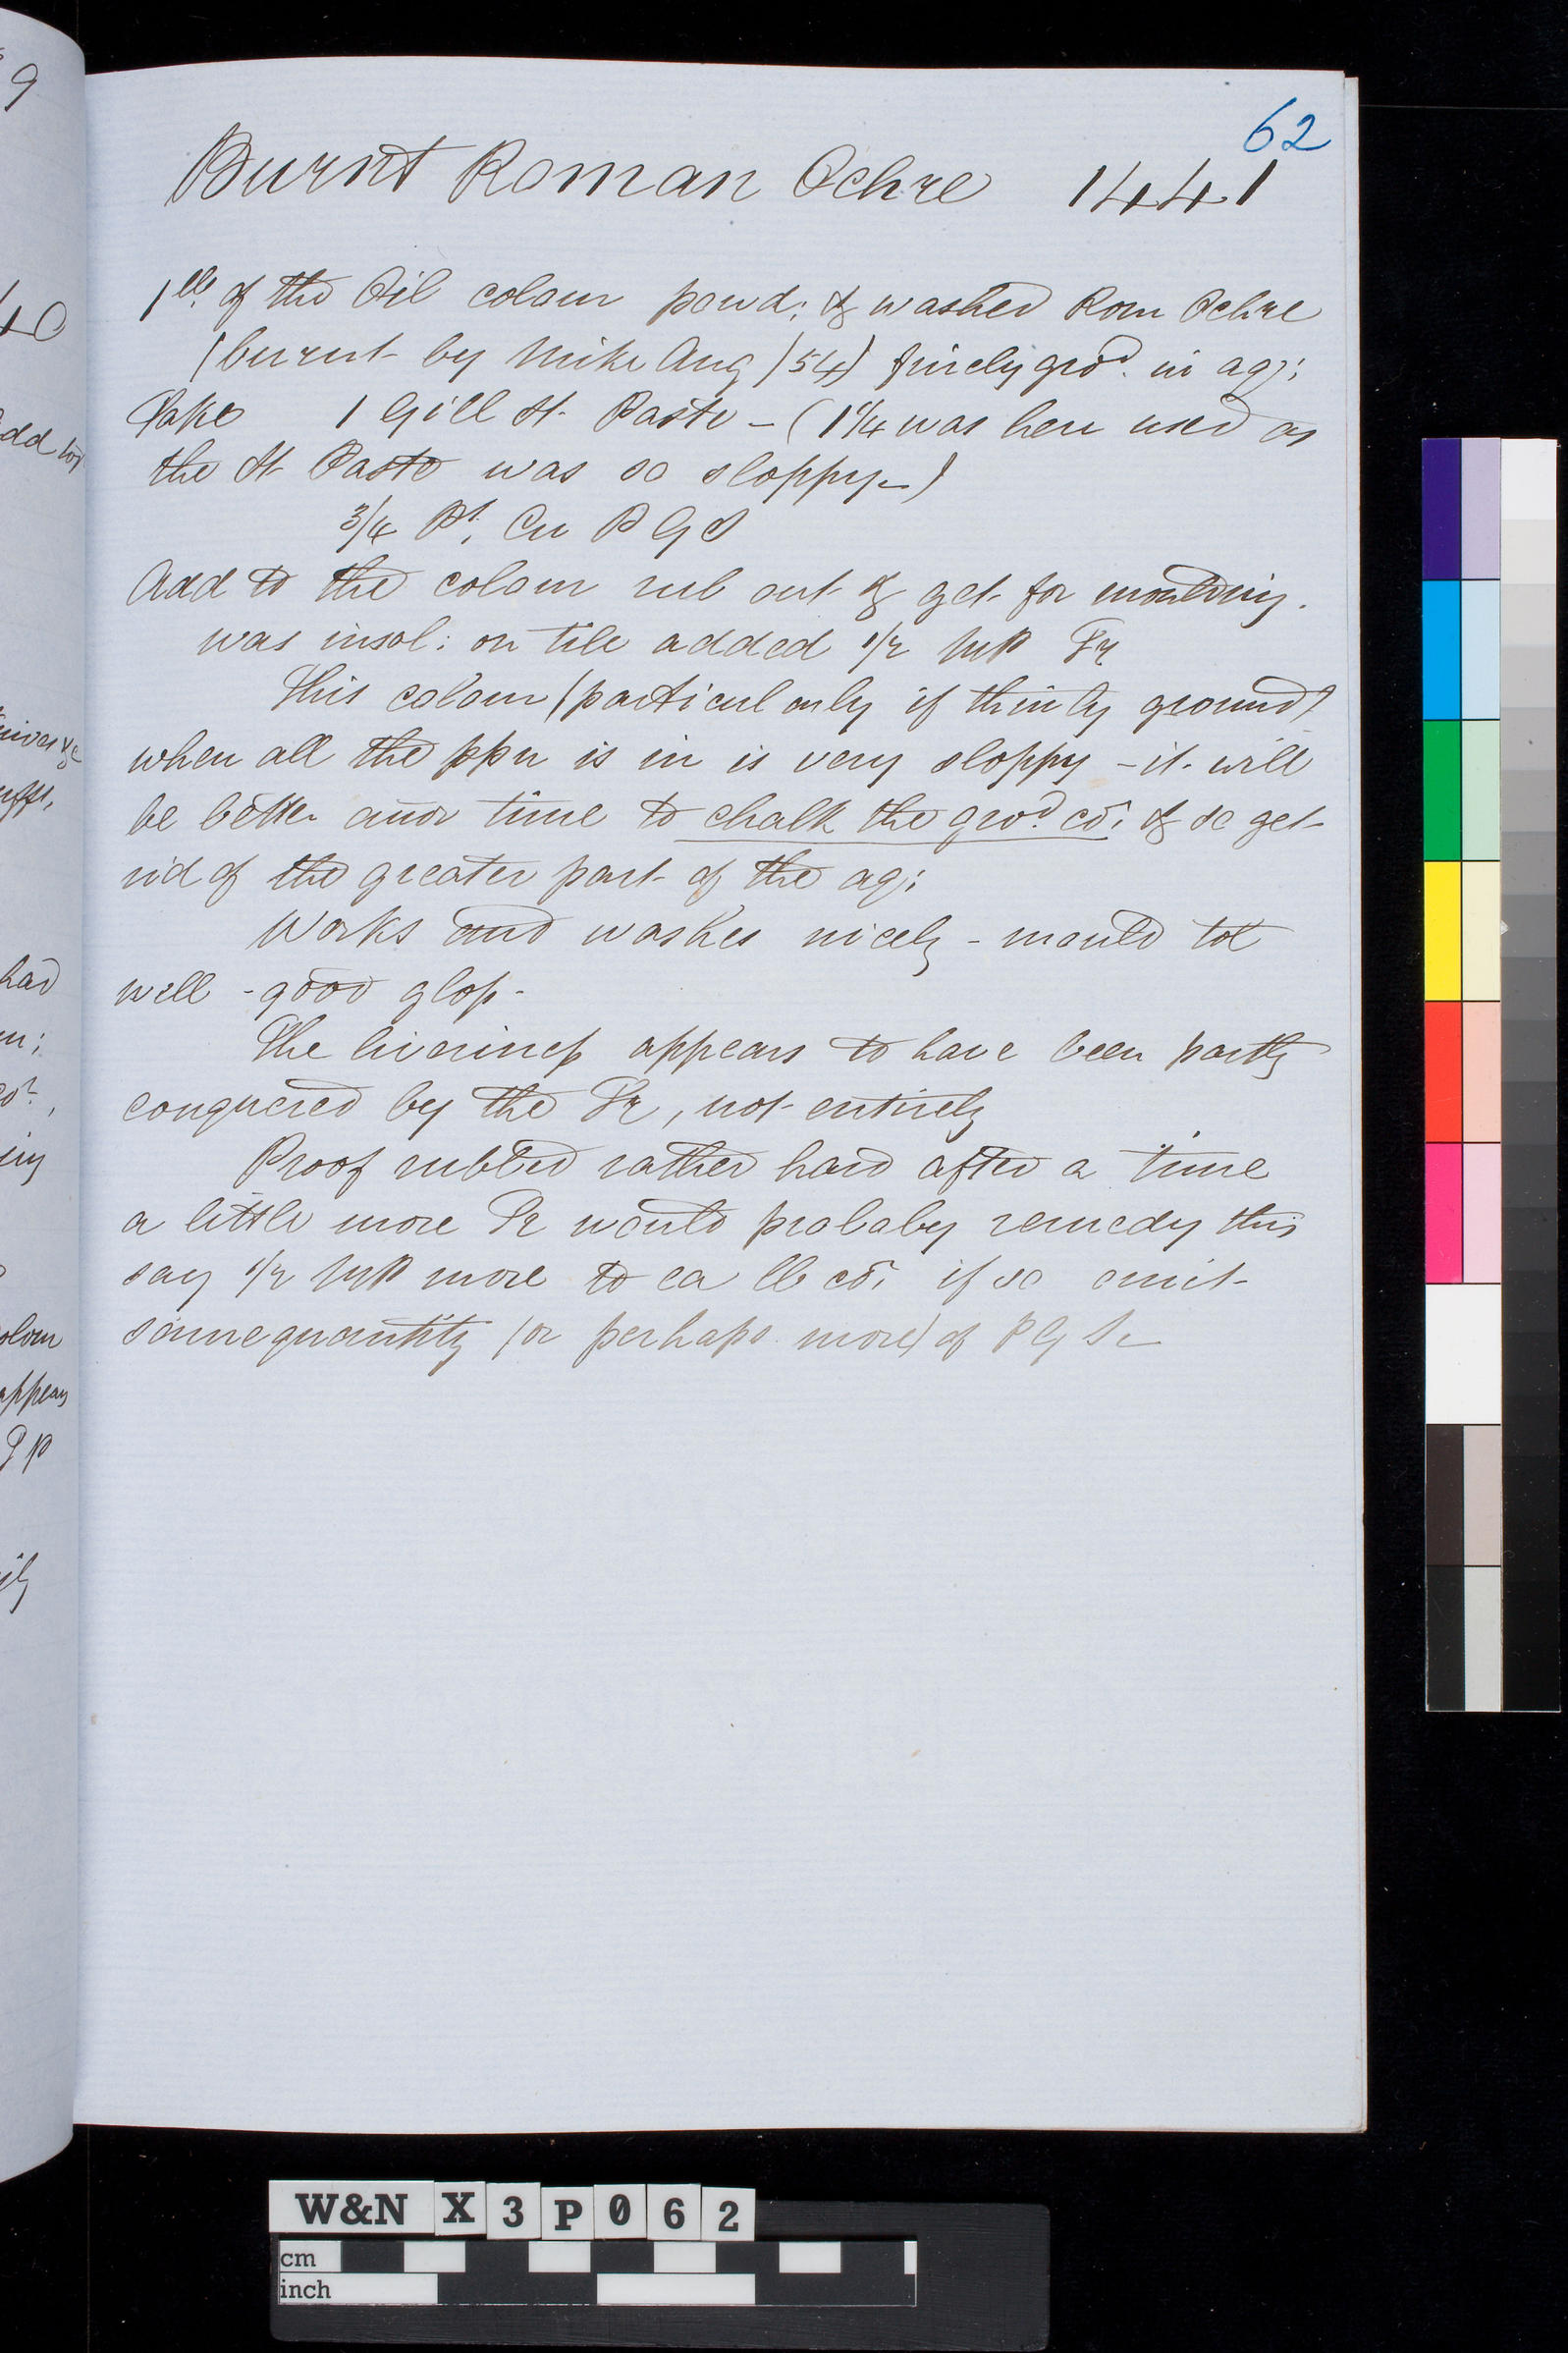 62
Burnt Roman Ochre 1441
1 lb. of the Oil colour powd: & washed Rom Ochre
(burnt by Mike Aug /54) finely gro^d. in aq:
Take 1 Gill St. Paste - (1 1/4 was here used as
the St Paste was so sloppy -)
3/4 Pt. Cu P G S
Add to the colour rub out & get for moulding.
was insol: on tile added 1/2 MP Tr
This colour (particularly if thinly ground)
when all the ppn is in is very sloppy - it will
be better anor time to chalk the gro^d. co: & so get
rid of the greater part of the aq:
Works and washes nicely - mould tol
well - good gloss -
The liveriness appears to have been partly
conquered by the Tr, not entirely
Proof rubbed rather hard after a time
a little more Tr would probaby remedy this
say 1/2 MP more to ea lb co: if so omit
same quantity (or perhaps more) of P G S -
9
40
add to
had
colour
appears
W&N X3P062
cm
inch